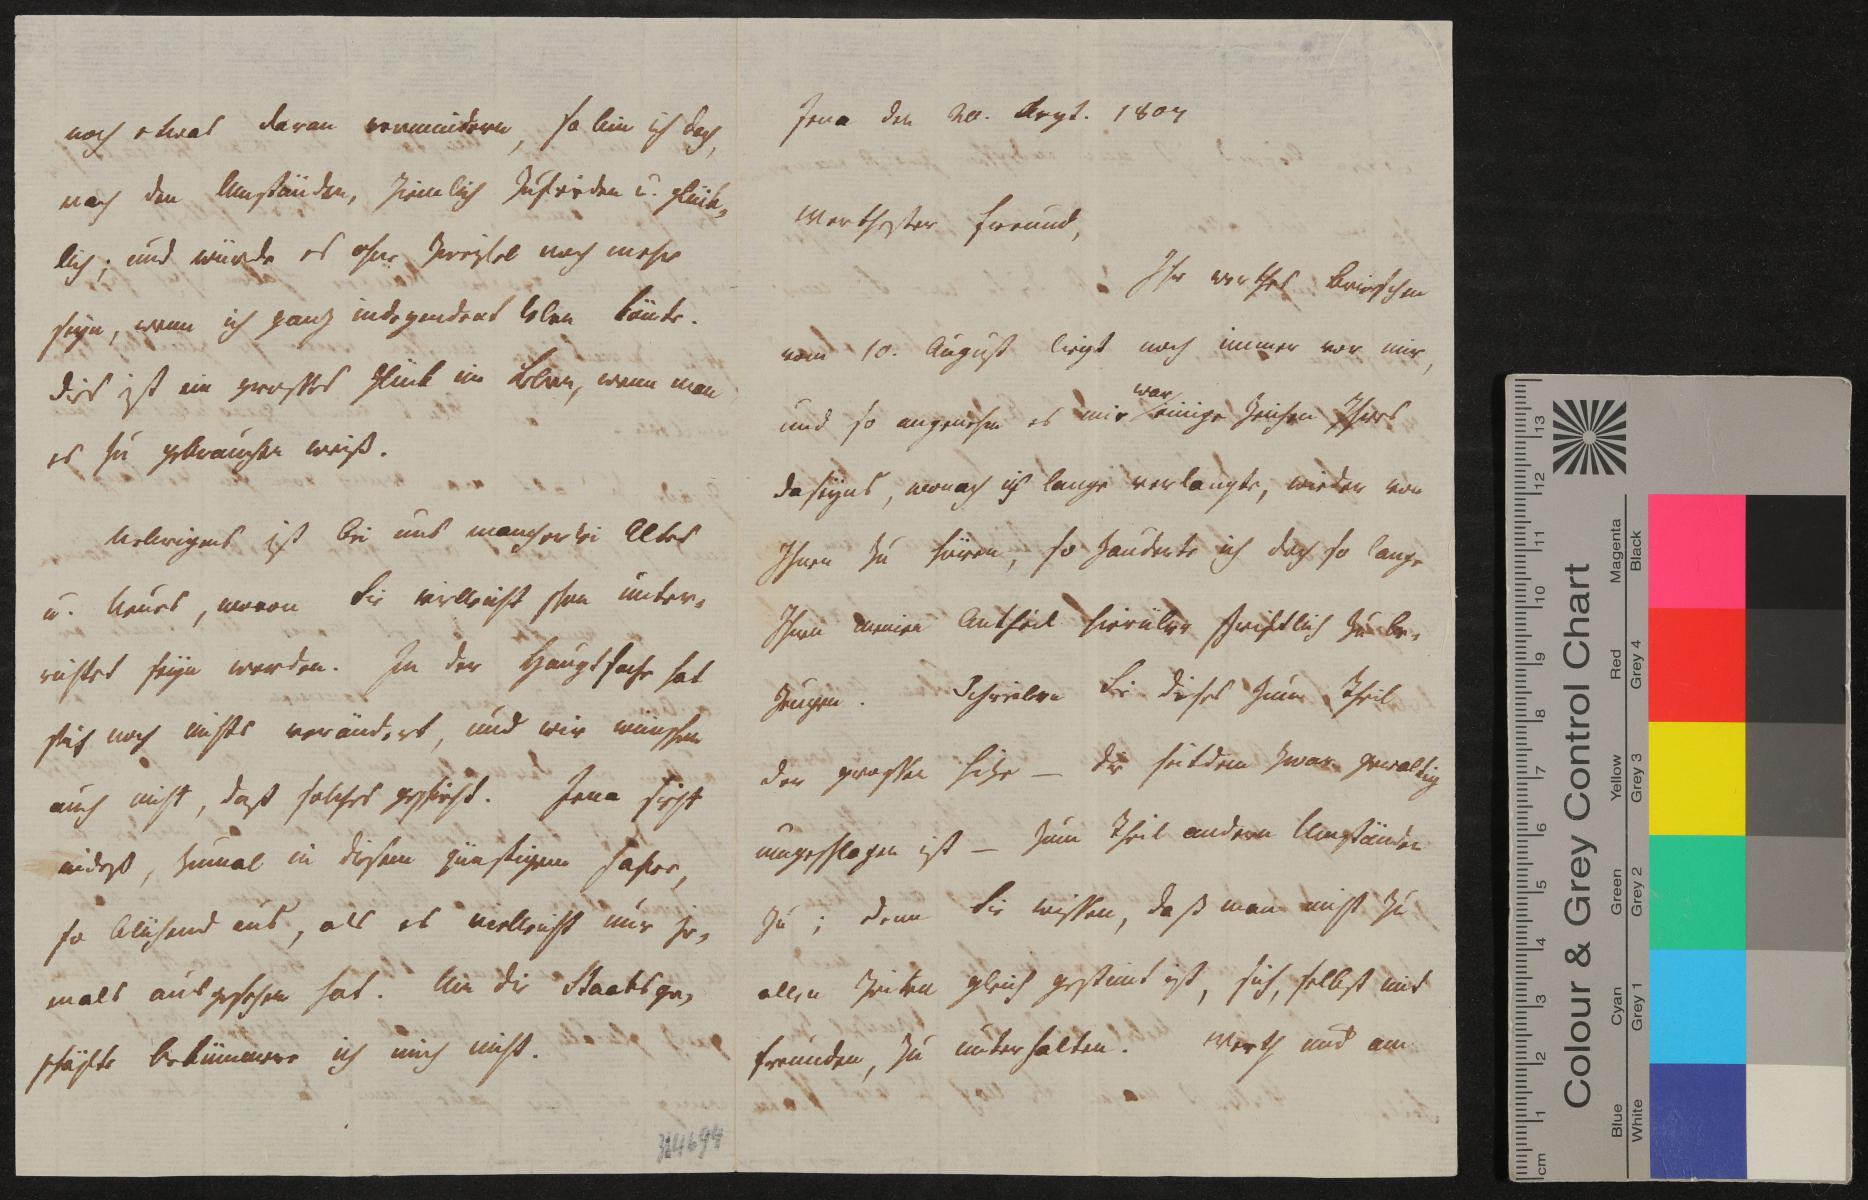 noch etwas daran vermindern, so bin ich doch,
nach den Umständen, ziemlich zufrieden u. glück-
lich; und würde es ohne Zweifel noch mehr
seyn, wenn ich ganz independent leben könte.
Dies ist ein grosses Glück im Leben, wenn man
es zu gebrauchen weiß.
Uebrigens ist bei uns mancherlei Altes
u. Neues, wovon Sie vielleicht schon unter-
richtet seyn werden. In der Hauptsache hat
sich noch nichts verändert, und wir wünschen
auch nicht, daß solches geschieht. Jena sieht
indeß, zumal in diesem günstigen Jahre,
so blühend aus, als es vielleicht nur je-
mals ausgesehen hat. Um die Staatsge-
schäfte bekümmere ich mich nicht.
Jena den 20. Sept. 1807
Werthester Freund,
Ihr werthes Briefchen
vom 10. August liegt noch immer vor mir,
und so angenehm es mir war einige Zeichen Ihres
Daseyns, wonach ich lange verlangte, wieder von
Ihnen zu hören, so zauderte ich doch so lange
Ihnen meinen Antheil hierüber schriftlich zu be-
zeugen. Schreiben Sie dieses zum Theil
der grossen Hitze — die seitdem zwar gewaltig
umgeschlagen ist — zum Theil andern Umständen
zu; denn Sie wissen, daß man nicht zu
allen Zeiten gleich gestimt ist, sich, selbst mit
Freunden, zu unterhalten. Werth und an
Colour & Grey Control Chart
Blue Cyan Green Yellow Red Magenta
White Grey 1 Grey 2 Grey 3 Grey 4 Black
cm 1 2 3 4 5 6 7 8 9 10 11 12 13